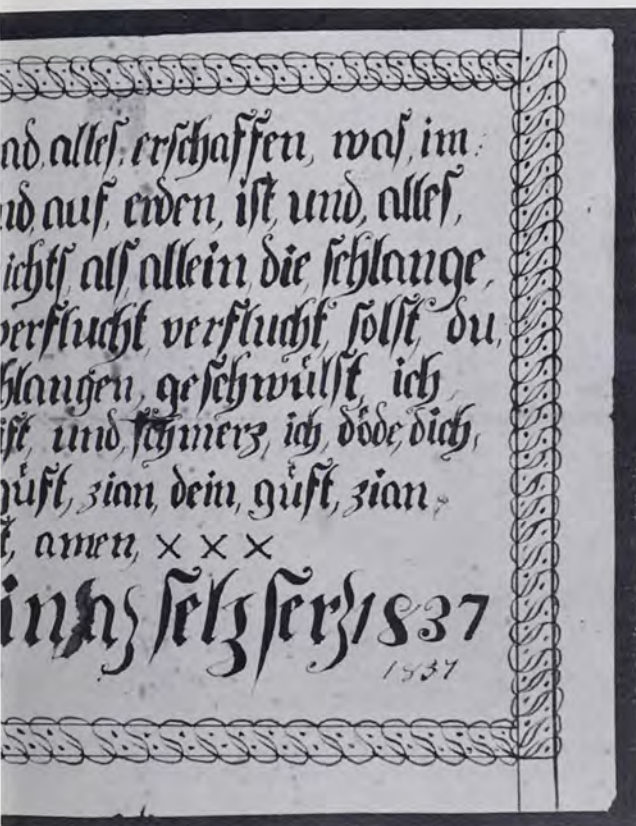 ad, alles, erschaffen, was, im
nd, auf, erden, ist, und, alles,
ichts, als, allein, die, schlange,
verflucht, verflucht, solst, du,
hlangen, geschwülst, ich,
ist, und, schmerz, ich, döde, dich,
güft, zian, dein, güft, zian
t, amen, x x x
selzser, 1837
1837